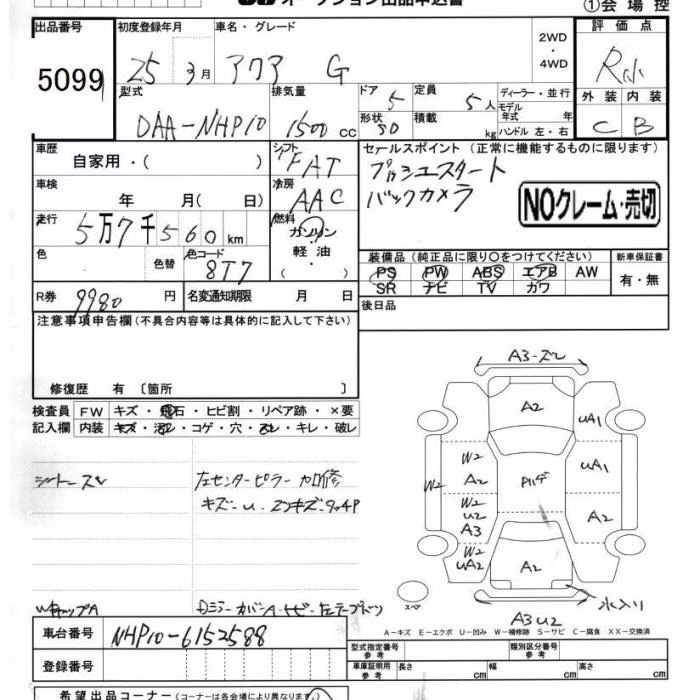 オークション出品申込書
①会場控
出品番号
初度登録年月
車名・グレード
評価点
5099
25 3月
アクア G
2WD
・
4WD
型式
排気量
ドア 5
定員 5人
ディーラー・並行
モデル年式 年
外装 内装
DAA-NHP10
1500cc
形状 5D
積載 kg
ハンドル 左・右
C B
車歴
自家用・( )
シフト
FAT
セールスポイント (正常に機能するものに限ります)
プッシュスタート
バックカメラ
NOクレーム・売切
車検
年 月( 日)
冷房
AAC
走行
5万7千560km
燃料
ガソリン
軽油
・( )
色
色替
色コード
8T7
装備品 (純正品に限り○をつけてください)
新車保証書
PS PW ABS エアB AW
SR ナビ TV カワ
有・無
R券 9980円
名変通知期限 月 日
後日品
注意事項申告欄 (不具合内容等は具体的に記入して下さい)
修復歴 有 〔箇所 〕
検査員記入欄
FW キズ・飛石・ヒビ割・リペア跡・×要
内装 キズ・汚れ・コゲ・穴・スレ・キレ・破レ
シートスレ
左センターピラー加修
A3-ズレ
A2
UA1
W2
W2
A2
UA1
W2
U2
A3
A2
W2
UA2
A2
水入り
スペア
A3U2
A-キズ E-エクボ U-凹み W-補修跡 S-サビ C-腐食 XX-交換済
車台番号
NHP10-6152588
登録番号
型式指定番号 参考
類別区分番号 参考
車庫証明用 参考
長さ cm
幅 cm
高さ cm
希望出品コーナー (コーナーは各会場により異なります。)